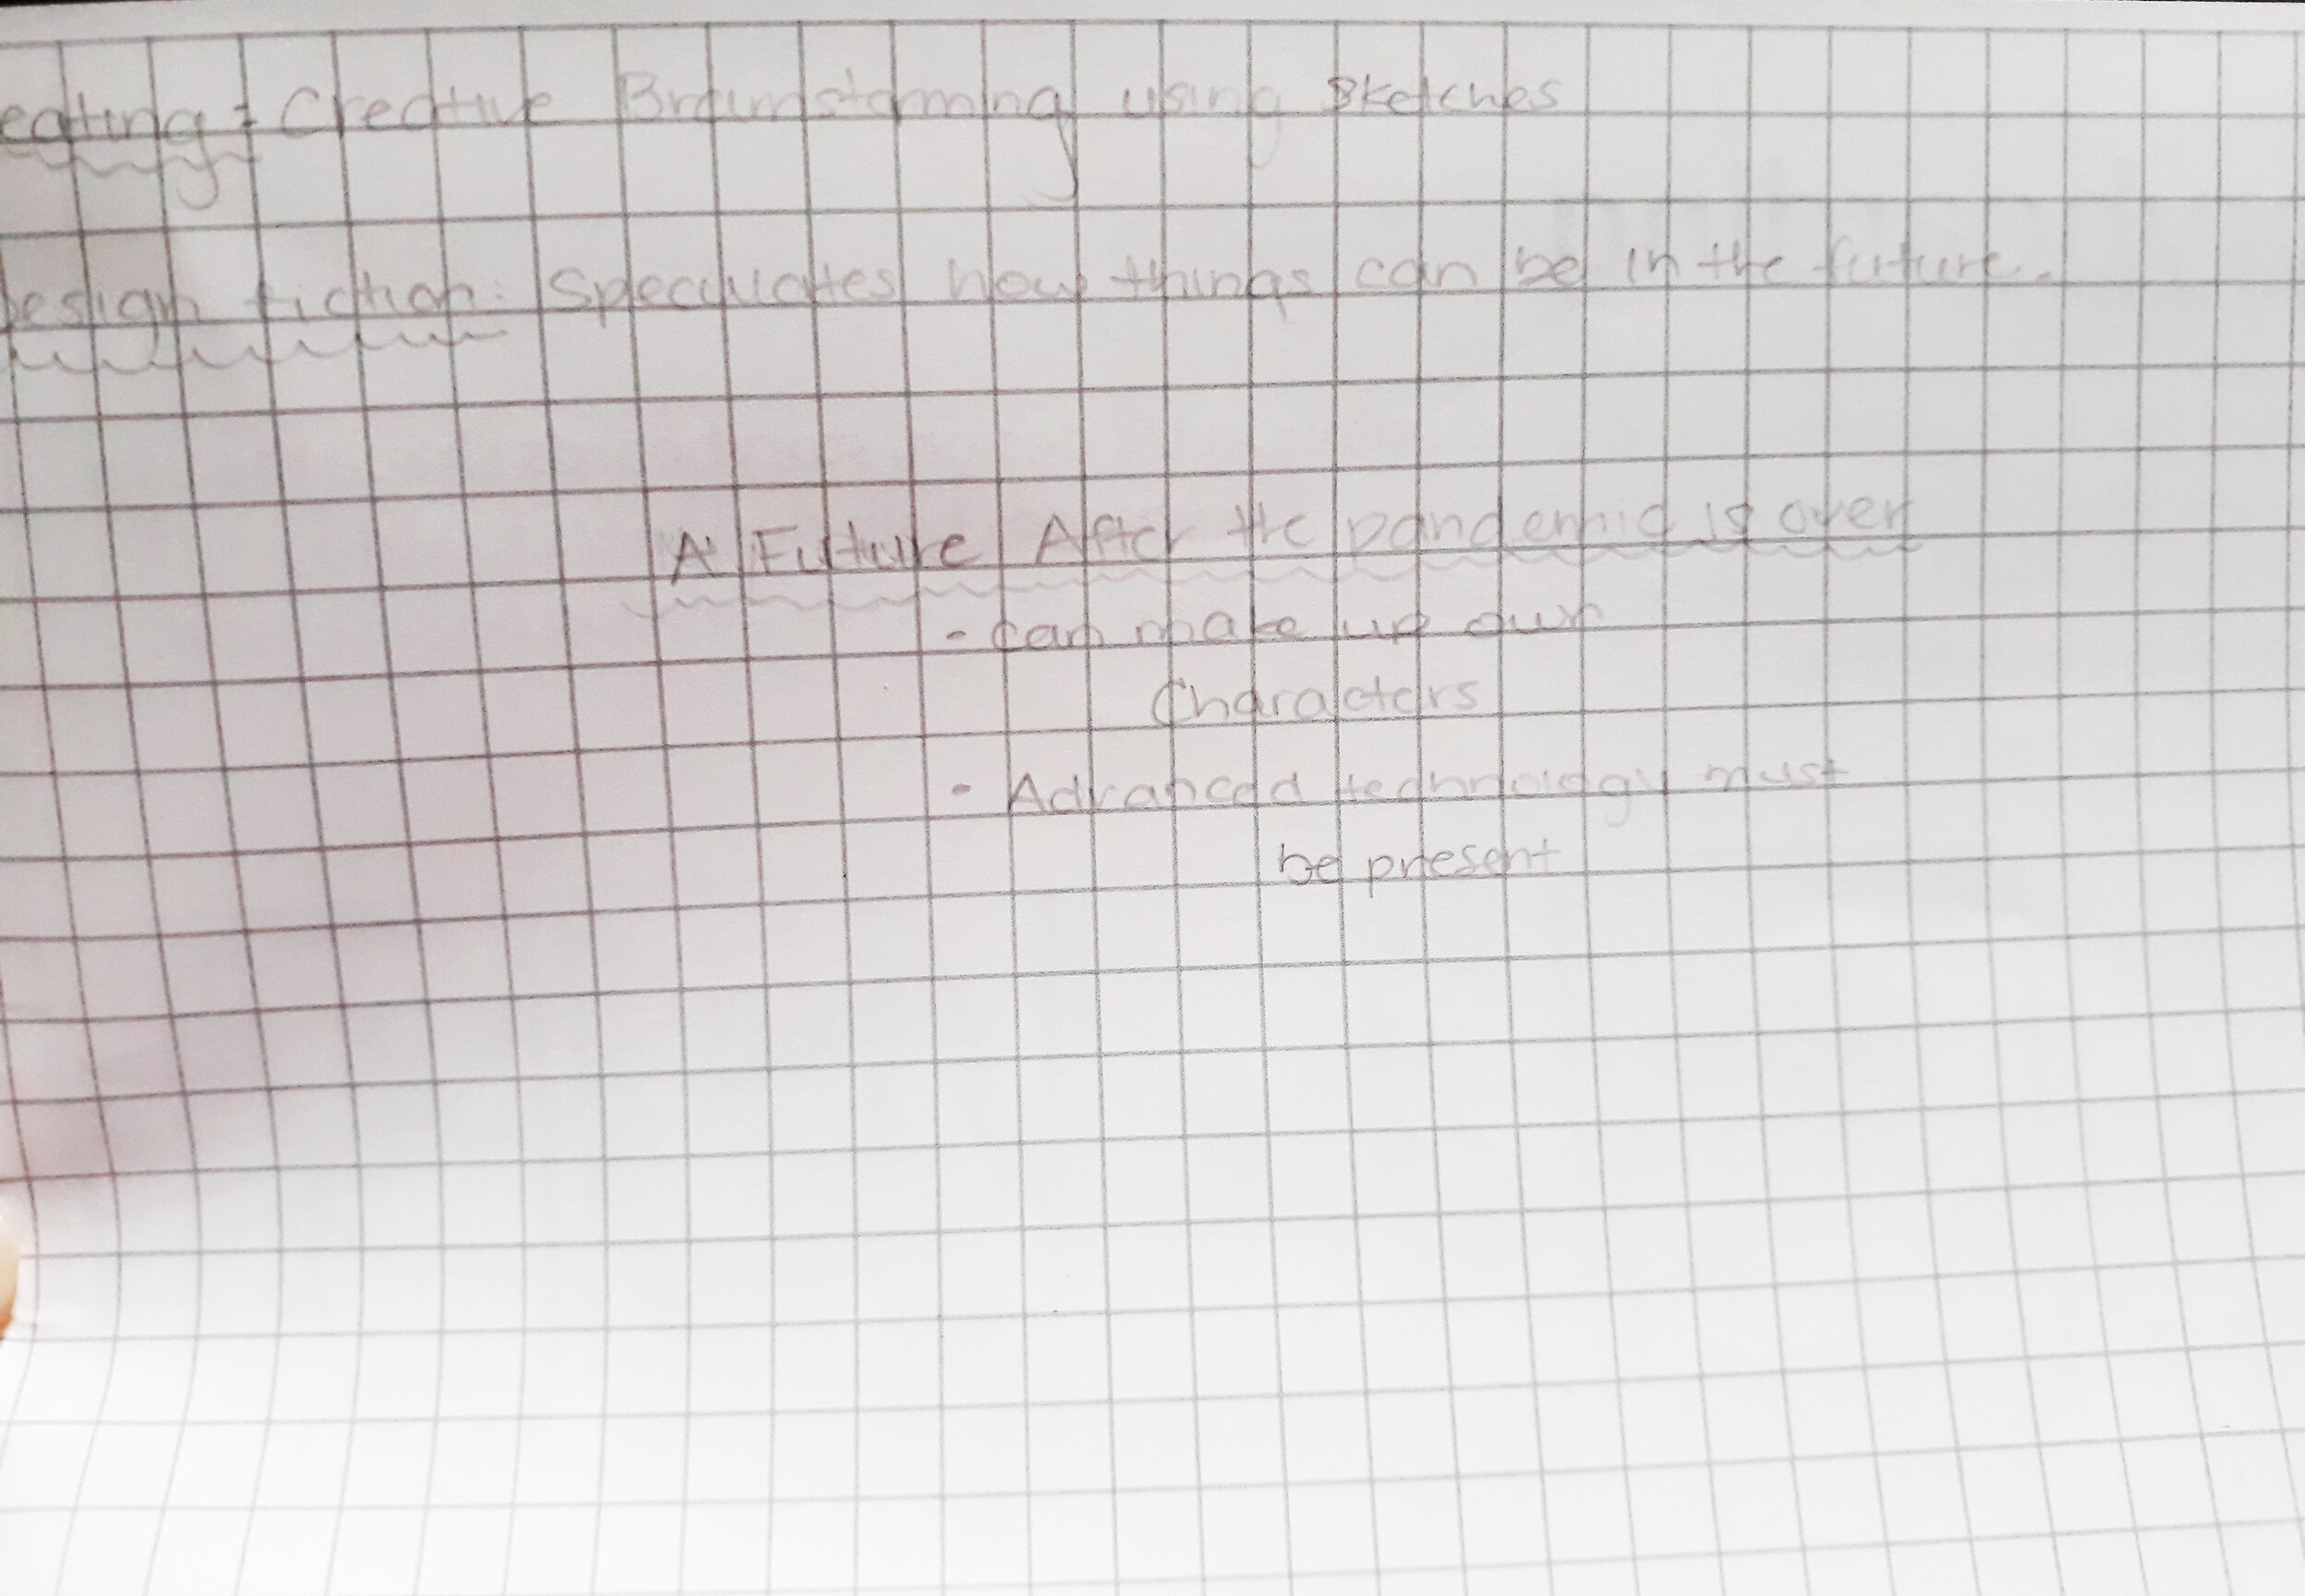 eating: Creative Brainstorming using Sketches
Design fiction: Speculates how things can be in the future.
A Future After the pandemic is over
- Can make up own
Characters
- Advanced technology must
be present